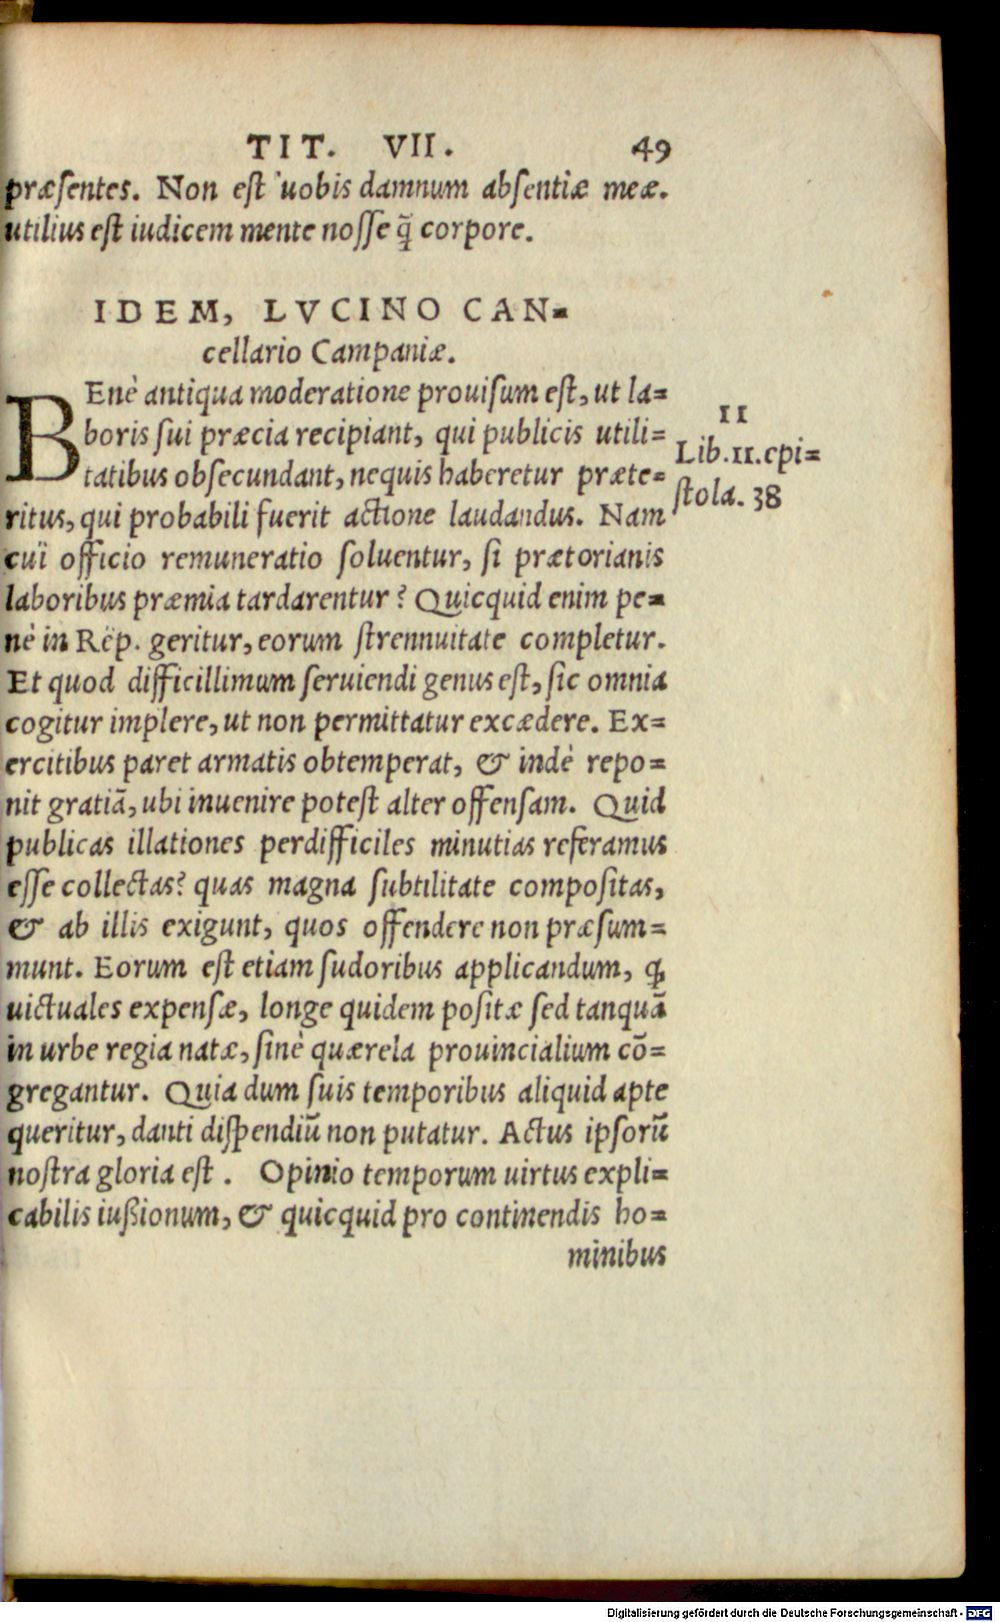 TIT. VII. 49
præsentes. Non est uobis damnum absentiæ meæ.
utilius est iudicem mente nosse q̃ corpore.
IDEM, LVCINO CAN=
cellario Campaniæ.
BEnè antiqua moderatione prouisum est, ut la=
boris sui præcia recipiant, qui publicis utili=
tatibus obsecundant, nequis haberetur præte=
ritus, qui probabili fuerit actione laudandus. Nam
cuï officio remuneratio soluentur, si prætorianis
laboribus præmia tardarentur? Quicquid enim pe=
nè in Rēp. geritur, eorum strennuitate completur.
Et quod difficillimum seruiendi genus est, sic omnia
cogitur implere, ut non permittatur excædere. Ex=
ercitibus paret armatis obtemperat, & indè repo=
nit gratiā, ubi inuenire potest alter offensam. Quid
publicas illationes perdifficiles minutias referamus
esse collectas? quas magna subtilitate compositas,
& ab illis exigunt, quos offendere non præsum=
munt. Eorum est etiam sudoribus applicandum, ꝙ
uictuales expensæ, longe quidem positæ sed tanquā
in urbe regia natæ, sinè quærela prouincialium cō=
gregantur. Quia dum suis temporibus aliquid apte
queritur, danti dispendiū non putatur. Actus ipsorū
nostra gloria est. Opinio temporum uirtus expli=
cabilis iußionum, & quicquid pro continendis ho=
minibus
11
Lib.11.epi=
stola. 38
Digitalisierung gefördert durch die Deutsche Forschungsgemeinschaft - DFG